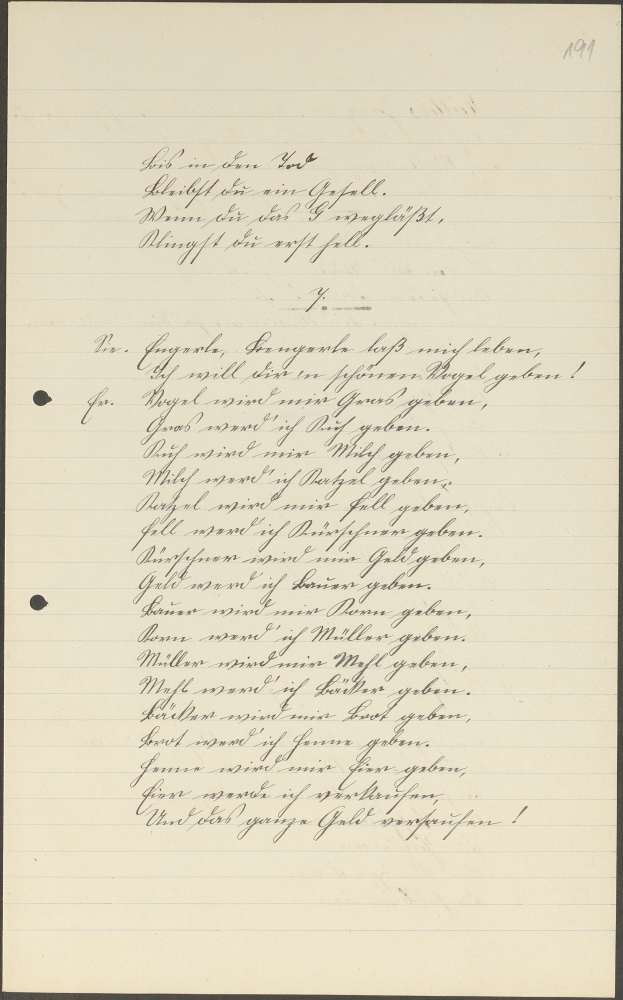 191
Bis in den Tod
Bleibst du ein Gesell.
Wenn du das G wegläßt,
Klingst du erst hell.
7.
Sie. Engerle, Bengerle laß mich leben,
Ich will dir 'n schönen Vogel geben!
Er. Vogel wird mir Gras geben,
Gras werd' ich Kuh geben.
Kuh wird mir Milch geben,
Milch werd' ich Katzel geben.
Katzel wird mir Fell geben,
Fell werd' ich Kürschner geben.
Kürschner wird mir Geld geben,
Geld werd ich Bauer geben.
Bauer wird mir Korn geben,
Korn werd' ich Müller geben.
Müller wird mir Mehl geben,
Mehl werd' ich Bäcker geben.
Bäcker wird mir Brot geben,
Brot werd' ich Henne geben.
Henne wird mir Eier geben,
Eier werde ich verkaufen,
Und das ganze Geld versaufen!